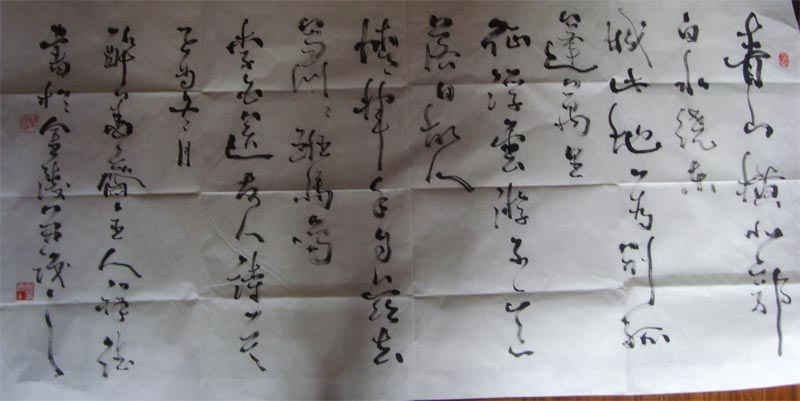 青山横北郭
白水绕东
城此地一为别孤
蓬万里
征浮云游子意
落日故人
情挥手自兹去
萧萧班马鸣
李白送友人诗一首
月
斋主人
书于金陵